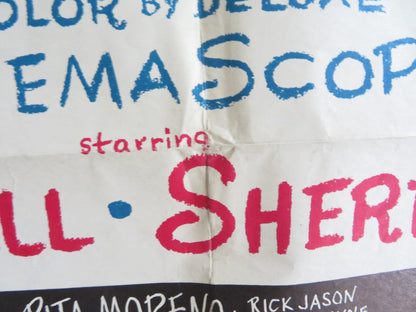 COLOR BY DELUXE
EMASCOP
starring
LL • SHERI
RITA MORENO • RICK JASON